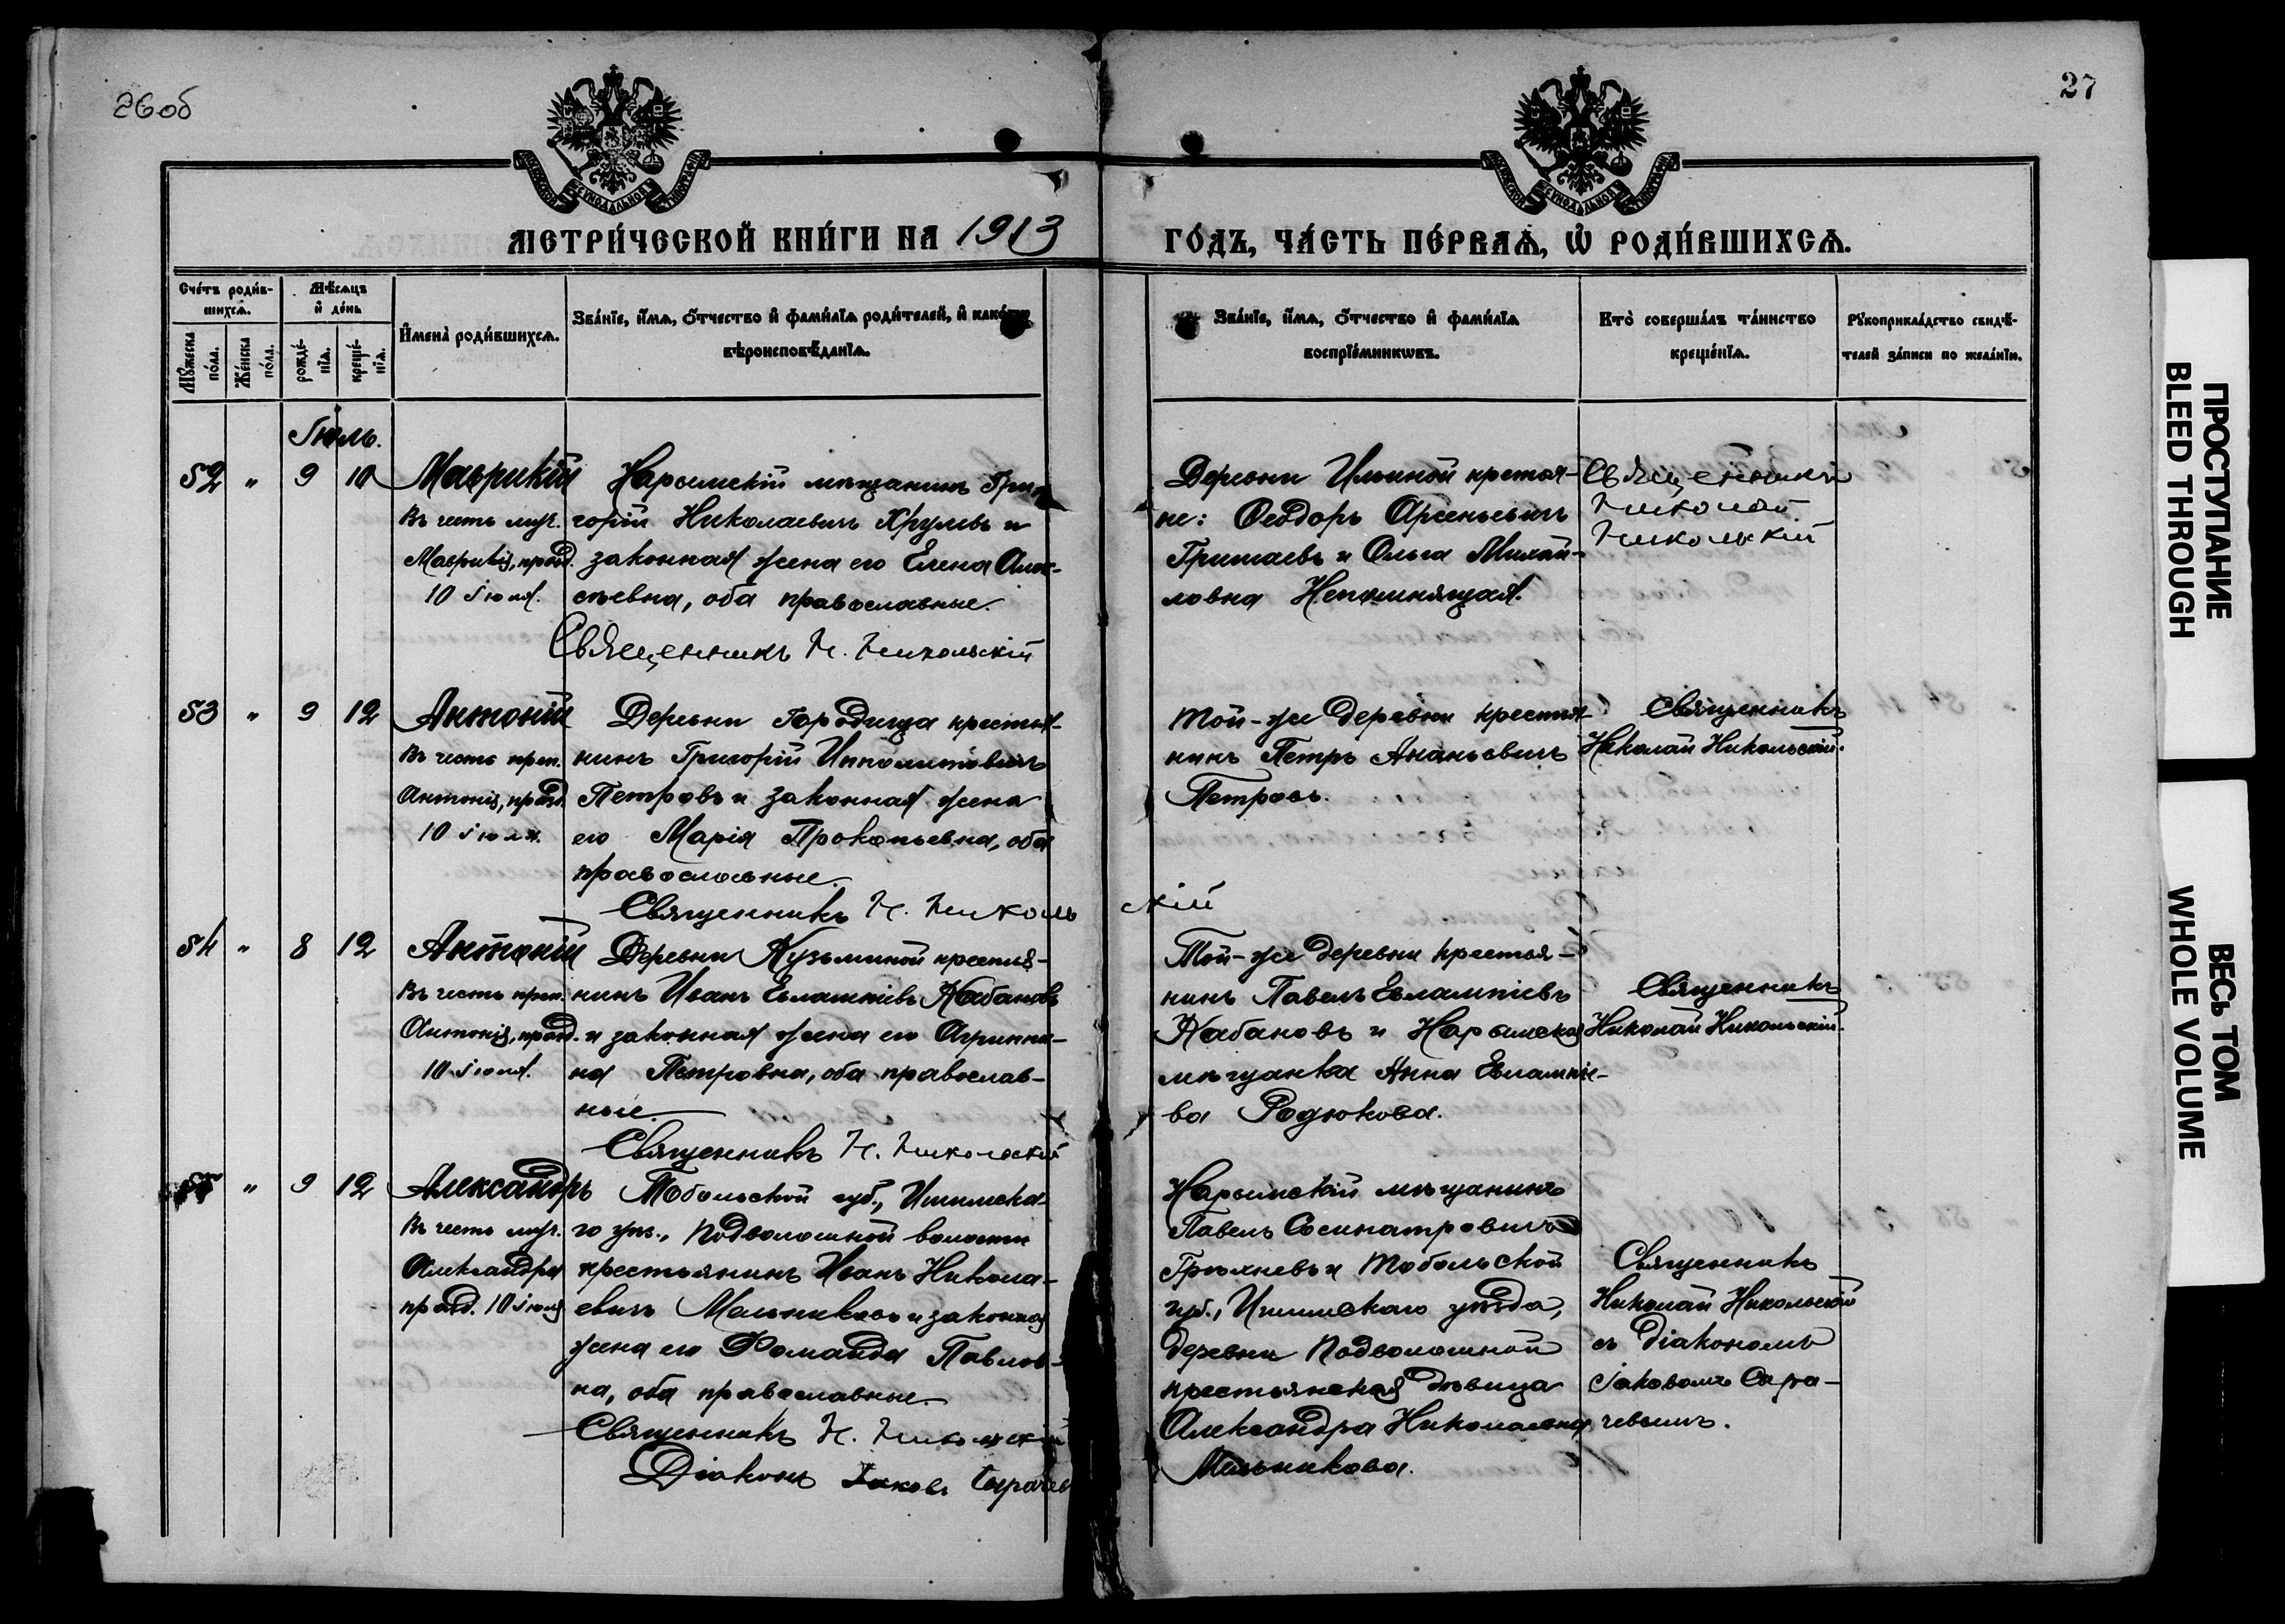 26об
27
МЕТРИ́ЧЕСКОЙ КНИ́ГИ НА 1913
ГО́ДЪ, ЧА́СТЬ ПЕ́РВАѦ, Ѡ҆ РОДИ́ВШИХСѦ.
Сче́тъ роди́в-
шихсѧ.
Мѣ́сѧцъ
и҆ де́нь
Мꙋ́жеска по́ла.
Же́нска по́ла.
рожде́-
нїѧ.
креще́-
нїѧ.
И҆мена̀ роди́вшихсѧ.
Зва́нїе, и҆́мѧ, ѻ҆́тчество и҆ фами́лїѧ роди́телей, и҆
вѣроисповѣ́данїѧ.
Зва́нїе, и҆́мѧ, ѻ҆́тчество и҆ фами́лїѧ
воспрїе́мникѡвъ.
Кто̀ соверша́лъ та́инство
креще́нїѧ.
Рꙋкоприкла́дство свидѣ́-
телей за́писи по жела́нїю.
Іюль.
52 " 9 10 Маврикій
Въ честь муч.
Маврикія, празд.
10 іюля.
Нарымскій мѣщанинъ Гри-
горій Николаевичъ Хрулевъ и
законная жена его Елена Алек-
сѣевна, оба православные.
Священникъ Н. Никольскій
Деревни Ильиной крестья-
не: Ѳеодоръ Арсеньевичъ
Гришаевъ и Ольга Михай-
ловна Непомнящая.
Священникъ
Николай
Никольскій
53 " 9 12 Антоній
Въ честь преп.
Антонія, празд.
10 іюля.
Деревни Городища крестья-
нинъ Григорій Ипполитовичъ
Петровъ и законная жена
его Марія Прокопьевна, оба
православные.
Священникъ Н. Николь
скій
Той-же деревни крестья-
нинъ Петръ Ананьевичъ
Петровъ.
Священникъ
Николай Никольскій.
54 " 8 12 Антоній
Въ честь преп.
Антонія, празд.
10 іюля.
Деревни Кузьминой крестья-
нинъ Иванъ Евлампіевъ Кабановъ
и законная жена его Агриппи-
на Петровна, оба православ-
ные.
Священникъ Н. Никольскій
Той-же деревни крестья-
нинъ Павелъ Евлампіевъ
Кабановъ и Нарымская
мѣщанка Анна Евлампіе-
ва Родюкова.
Священникъ
Николай Никольскій.
55 " 9 12 Александръ
Въ честь муч.
Александра
празд. 10 іюля
Тобольской губ., Ишимска-
го уѣз., Подволошной волости
крестьянинъ Иванъ Никола-
евичъ Мельниковъ и законная
жена его Домаида Павлов-
на, оба православные.
Священникъ Н. Никольскій
Діаконъ Іаковъ Сырачев
Нарымскій мѣщанинъ
Павелъ Сосипатровичъ
Грѣхневъ и Тобольской
губ., Ишимскаго уѣзда,
деревни Подволошной
крестьянская дѣвица
Александра Николаевна
Мельникова.
Священникъ
Николай Никольскій
съ Діакономъ
Іаковомъ Сыра-
чевымъ.
ПРОСТУПАНИЕ
BLEED THROUGH
ВЕСЬ ТОМ
WHOLE VOLUME